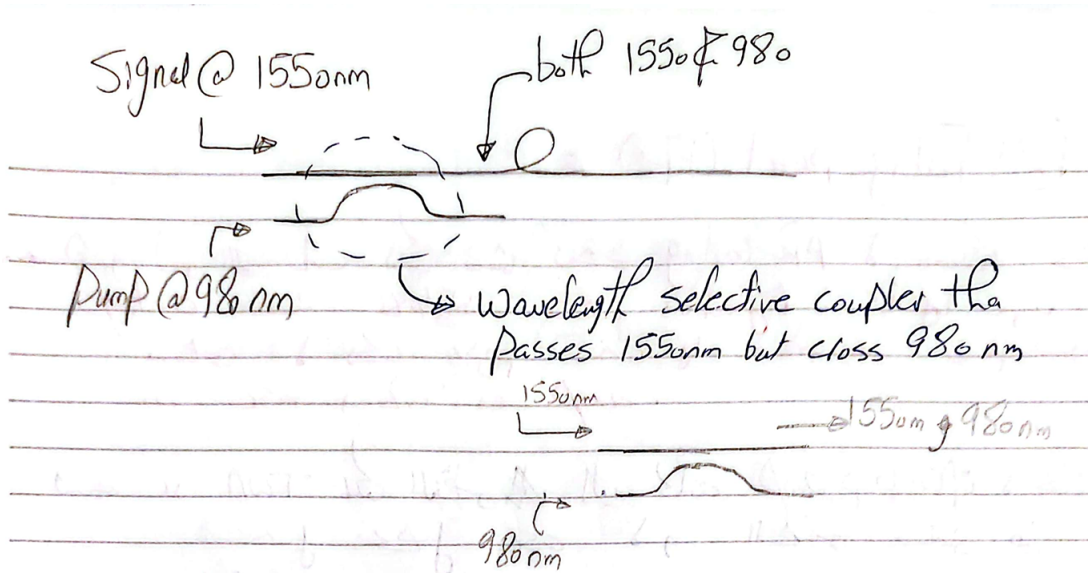 Signal @ 1550nm
both 1550 & 980
Pump @ 980 nm
Wavelength selective coupler tha
Passes 1550nm but cross 980 nm
1550nm
1550m g 980nm
980nm